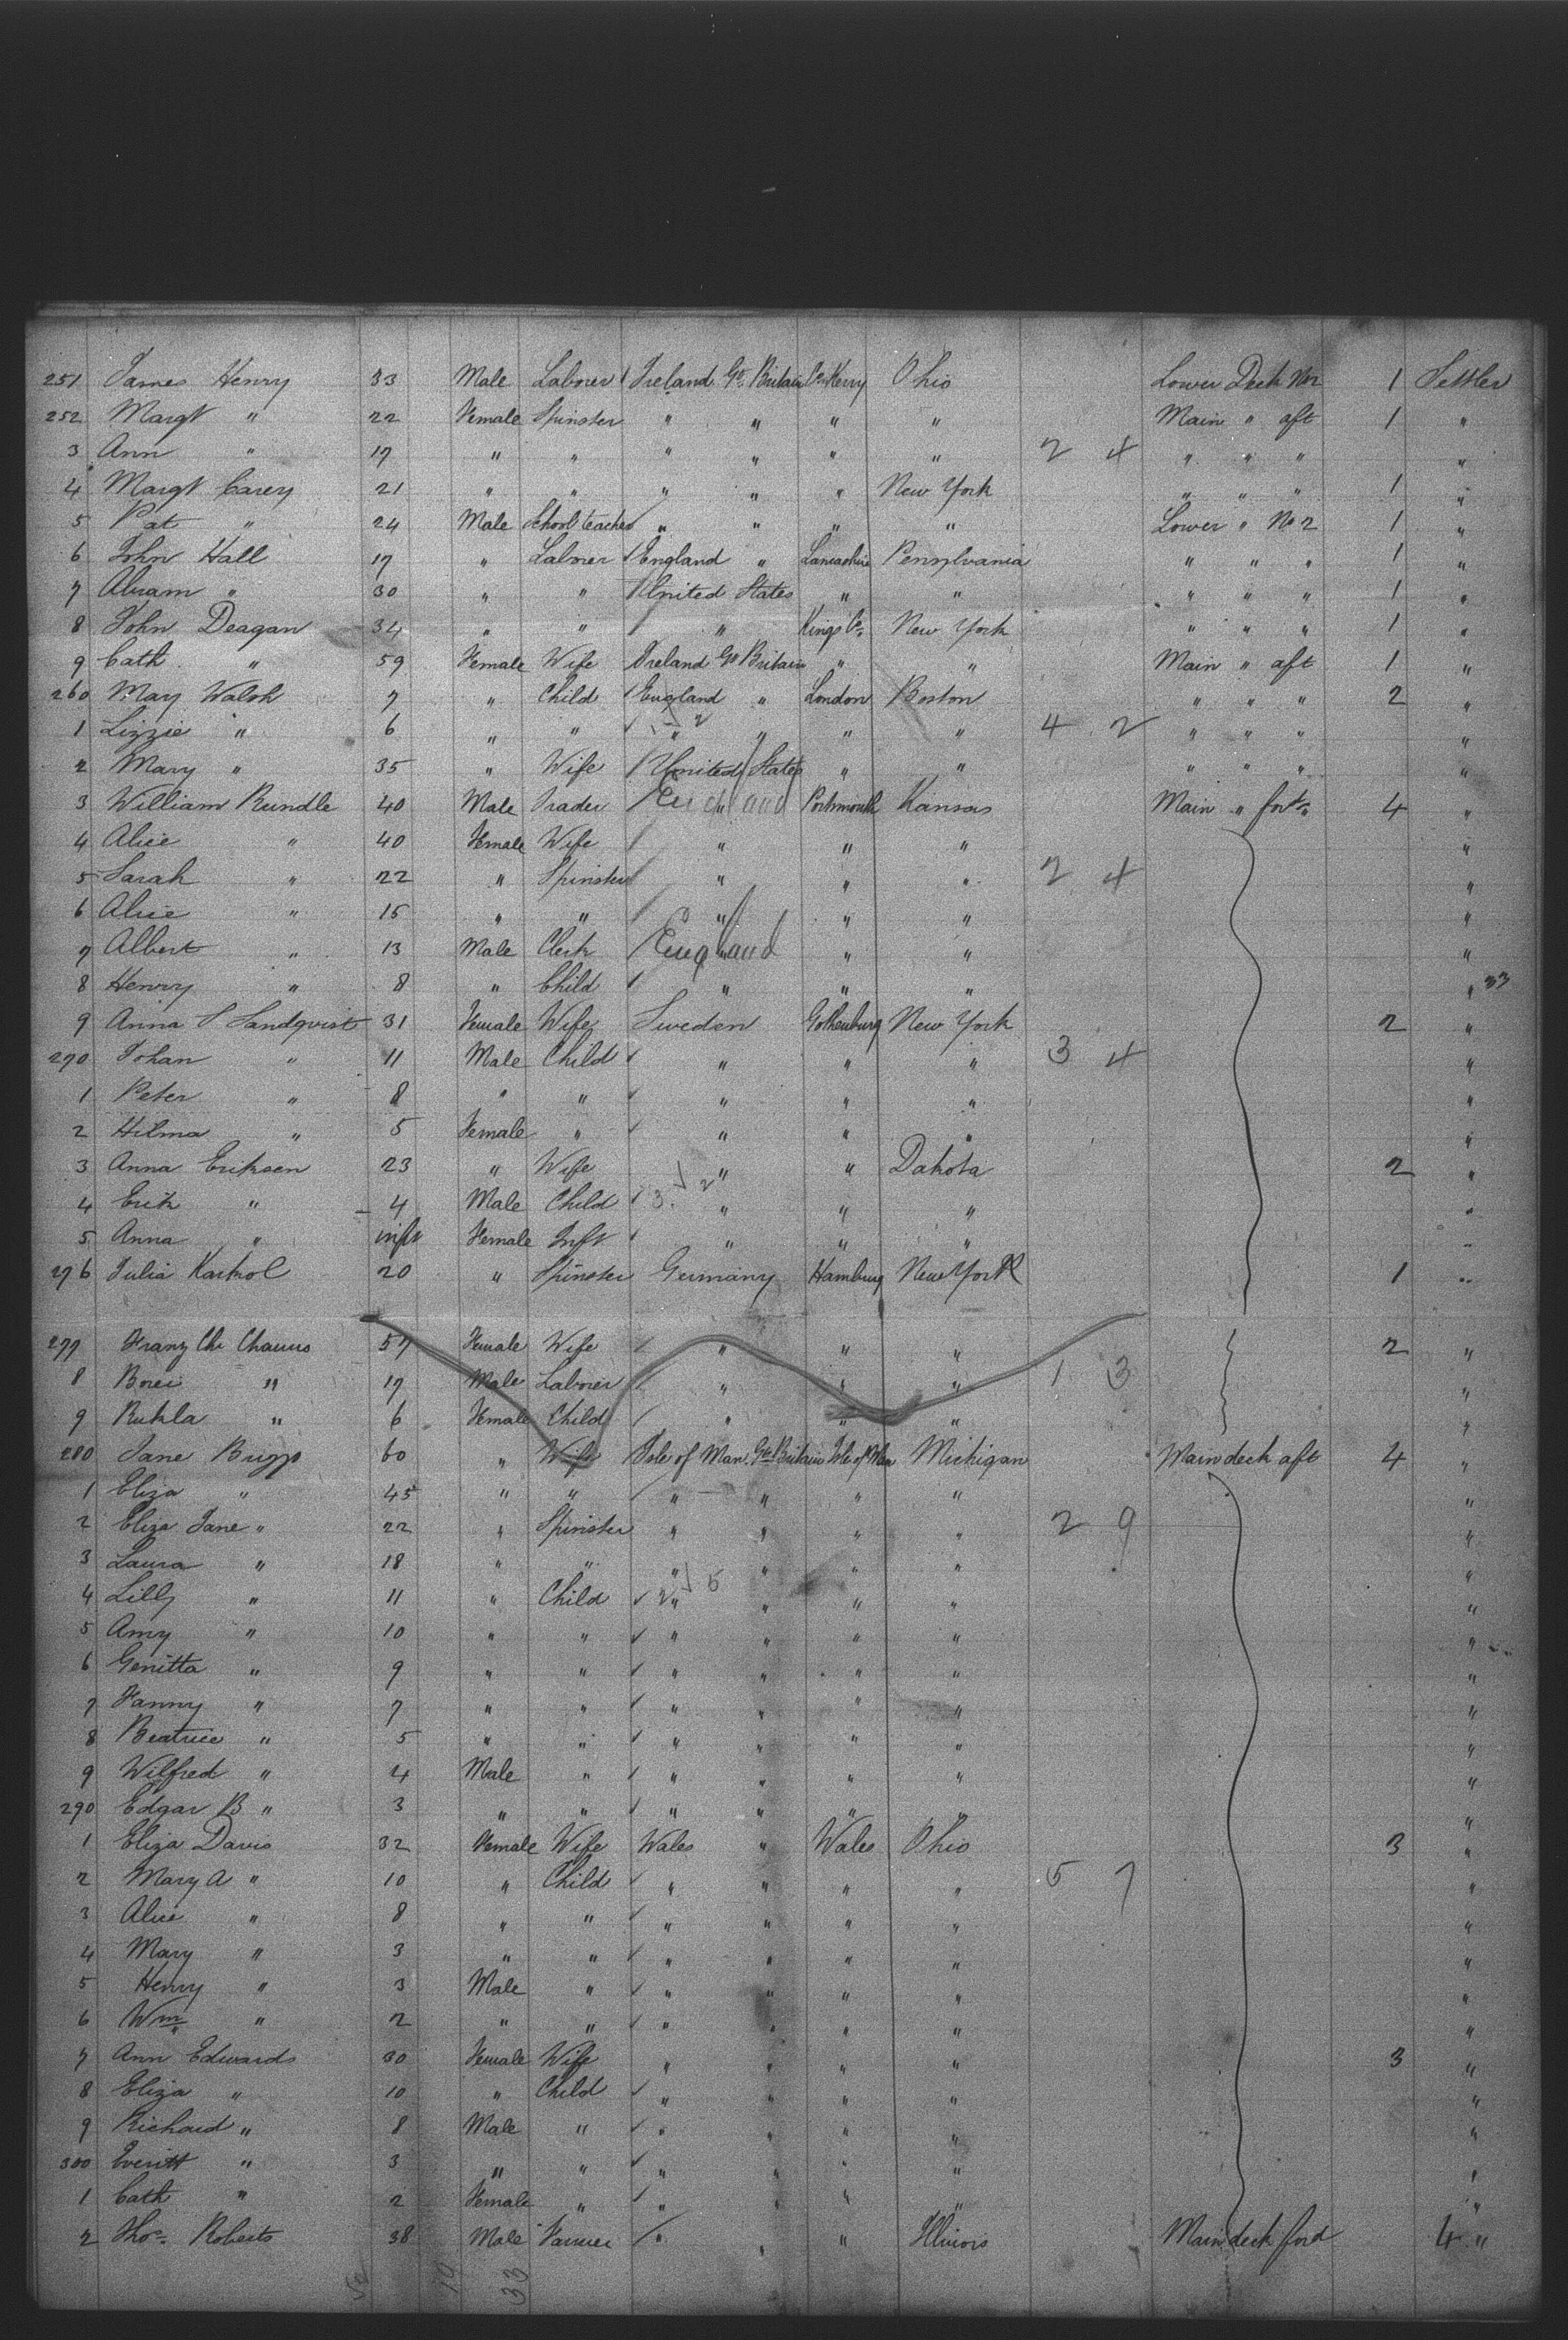 251 James Henry 33 Male Laborer Ireland Gt Britain Co. Kerry Ohio Lower Deck No 2 1 Settler
252 Margt " 22 Female Spinster " " " " Main " aft 1 "
3 Ann " 17 " " " " " " 2 4 " " " "
4 Margt Carey 21 " " " " " New York " " " 1 "
5 Pat " 24 Male School teacher " " " " Lower " No 2 1 "
6 John Hall 17 " Laborer England " Lancashire Pensylvania " " " 1 "
7 Abram " 30 " " United States " " " " " 1 "
8 John Deagan 34 " " " Kings Co. New York " " " 1 "
9 Cath " 59 Female Wife Ireland Gt Britain " " Main " aft 1 "
260 May Walsh 7 " Child England " London Boston " " " 2 "
1 Lizzie " 6 " " " " " " 4 2 " " " "
2 Mary " 35 " Wife United States " " " " " "
3 William Rundle 40 Male Trader England Portsmouth Kansas Main " 4 "
4 Alice " 40 Female Wife " " " "
5 Sarah " 22 " Spinster " " " 2 4 "
6 Alice " 15 " " " " " "
7 Albert " 13 Male Clerk England " " "
8 Henry " 8 " Child " " " " 33
9 Anna S Sandqvist 31 Female Wife Sweden Gothenburg New York 2 "
270 Johan " 11 Male Child " " " 3 4 "
1 Peter " 8 " " " " " "
2 Hilma " 5 Female " " " " "
3 Anna Eriksen 23 " Wife " " Dakota 2 "
4 Erik " 4 Male Child " " " "
5 Anna " inft Female Inft " " " "
276 Julia Karkol 20 " Spinster Germany Hamburg New York 1 "
277 Franz Che 57 Female Wife " " " 2 "
8 " 17 Male Laborer " " " 1 3 "
9 Rukla " 6 Female Child " " " "
280 Jane Briggs 60 " Wife Isle of Man Gt Britain Isle of Man Michigan Main deck aft 4 "
1 Eliza " 45 " " " " " " "
2 Eliza Jane " 22 " Spinster " " " " 2 9 "
3 Laura " 18 " " " " " " "
4 Lilly " 11 " Child " " " " "
5 Amy " 10 " " " " " " "
6 Genitta " 9 " " " " " " "
7 Fanny " 7 " " " " " " "
8 Beatrice " 5 " " " " " " "
9 Wilfred " 4 Male " " " " " "
290 Edgar B " 3 " " " " " " "
1 Eliza Davis 32 Female Wife Wales " Wales Ohio 3 "
2 Mary A " 10 " Child " " " " 5 7 "
3 Alice " 8 " " " " " " "
4 Mary " 3 " " " " " " "
5 Henry " 3 Male " " " " " "
6 Wm " 2 " " " " " " "
7 Ann Edwards 30 Female Wife " " " " 3 "
8 Eliza " 10 " Child " " " " "
9 Richard " 8 Male " " " " " "
300 Everitt " 3 " " " " " " "
1 Cath " 2 Female " " " " " "
2 Thos. Roberts 38 Male Farmer " " " Illinois Main deck ford 4 "
19 33